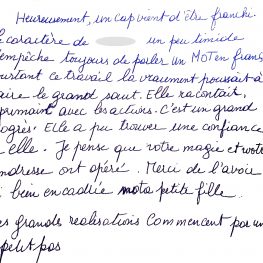 Heureusement, un cap vient d'être franchi.
e caractère de un peu timide
'empêche toujours de parler un MOT en franç
ourtant ce travail l'a vraiment poussait à
aire le grand saut. Elle racontait,
primait avec les actions. C'est un grand
ogrès. Elle a pu trouver une confiance
elle. Je pense que votre magie et votre
ndresse ont opéré. Merci de l'avoir
i bien encadrée mota petite fille.
es grands realisations Commencent par un
petit pas